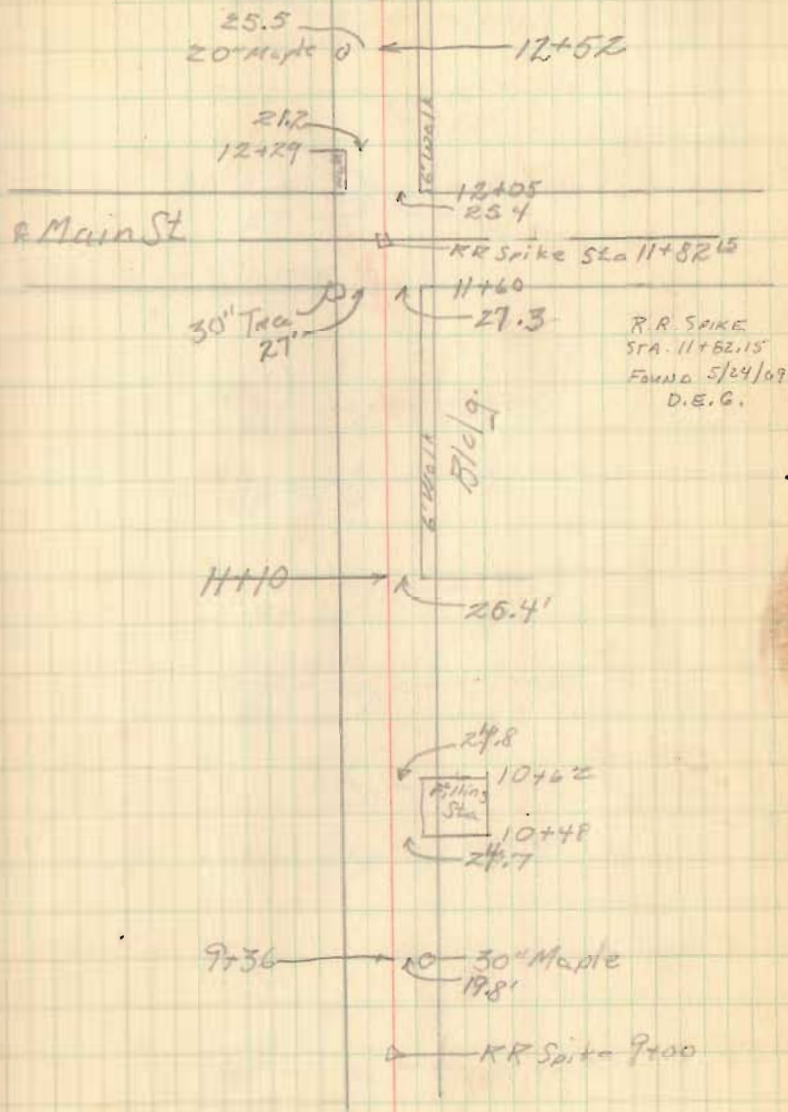 25.5
20" Maple
12+52
21.2
12+29
6' Walk
12+05
25.4
℄ Main St
RR Spike Sta 11+82.15
11+60
30" Tree
27'
27.3
R.R. SPIKE
STA. 11+82.15
FOUND 5/24/69
D.E.G.
Bldg.
6' Walk
11+10
26.4'
24.8
10+62
Filling
Sta
10+48
24.7
9+36
30" Maple
19.8'
RR Spike 9+00